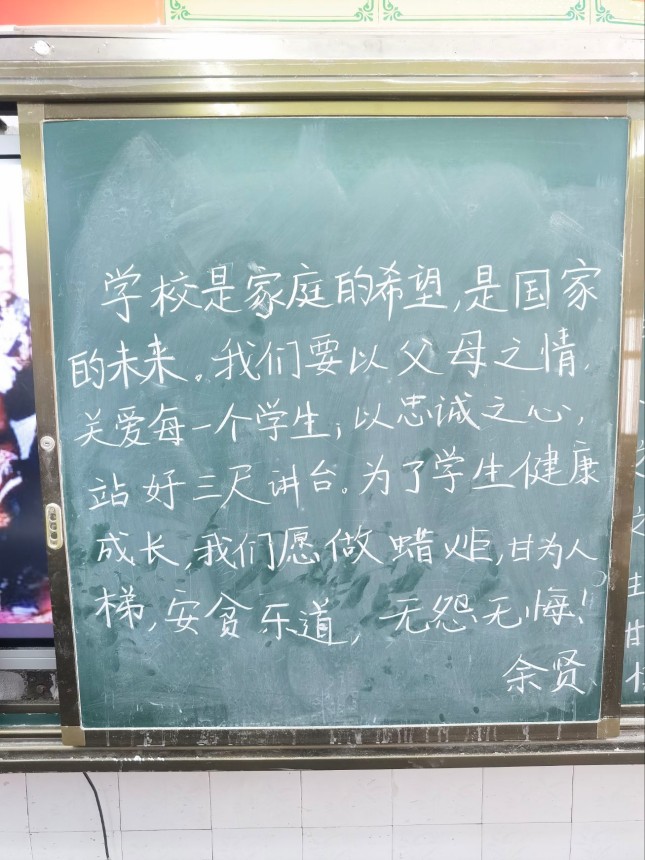 学校是家庭的希望,是国家
的未来。我们要以父母之情,
关爱每一个学生;以忠诚之心,
站好三尺讲台。为了学生健康
成长,我们愿做蜡炬,甘为人
梯,安贫乐道,无怨无悔!
余贤